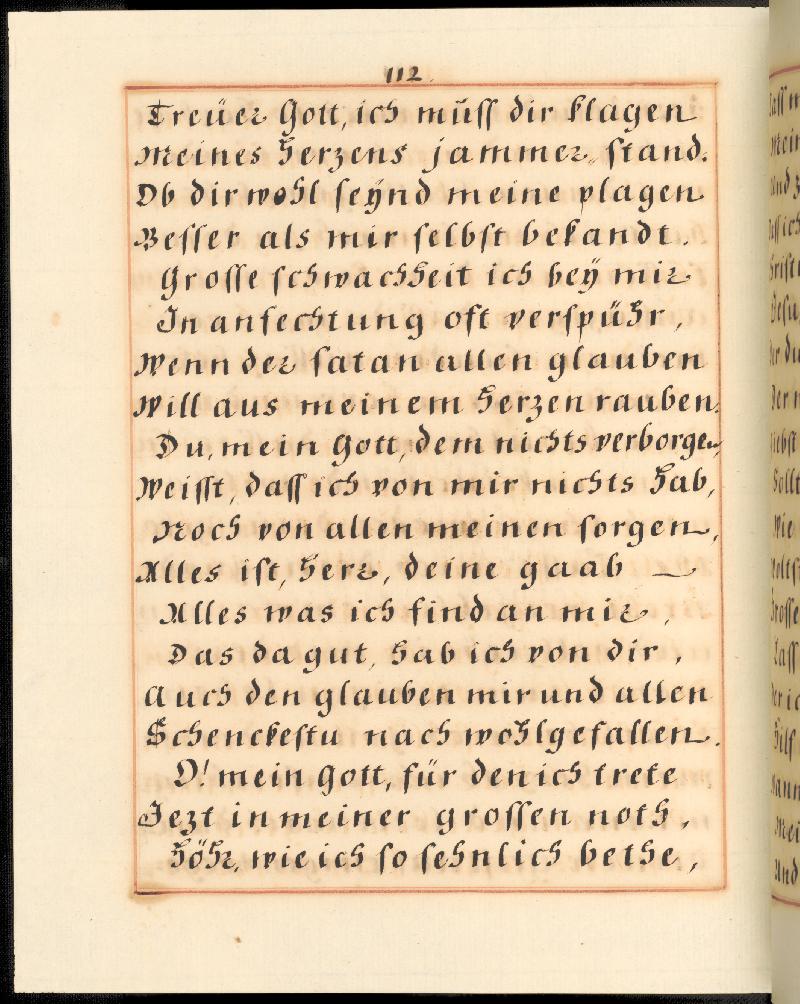 112.
Treüer Gott, ich müſſ dir klagen
Meines Herzens jammer, ſtand.
Ob dir wohl ſeÿnd meine plagen
Beſſer als mir ſelbſt bekandt.
Groſſe ſchwachheit ich beÿ mir
In anfechtung oft verſpühr,
Wenn der ſatan allen glauben
Will aus meinem Herzen rauben.
Du, mein Gott, dem nichts verborgen,
Weiſſt, daſſ ich von mir nichts Hab,
Noch von allen meinen ſorgen,
Alles iſt, Herr, deine gaab
Alles was ich find an mir,
Das da gut, Hab ich von dir,
Auch den glauben mir und allen
Schenckeſtu nach wohlgefallen.
O! mein Gott, für den ich trete
Jezt in meiner groſſen noth,
Höhr, wie ich ſo ſehnlich bethe,